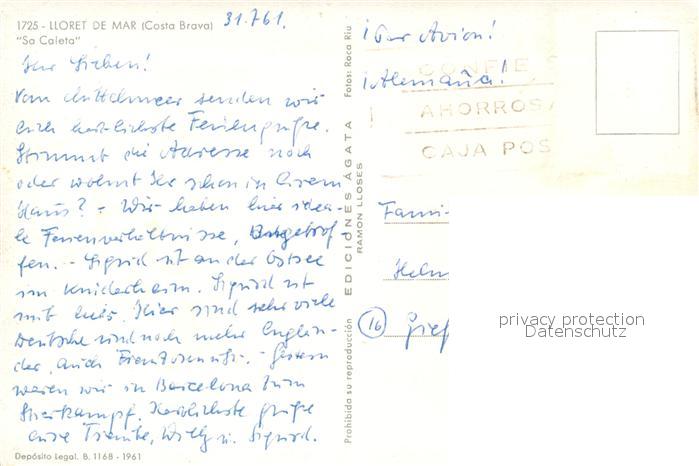 1725 - LLORET DE MAR (Costa Brava)
"Sa Caleta"
31.7.61.
Ihr Lieben!
Vom Mittelmeer senden wir
Euch herzlichste Feriengrüße.
Stimmt die Adresse noch
oder wohnt Ihr schon in Eurem
Haus? - Wir haben hier idea-
le Ferienverhältnisse, angetrof-
fen. - Sigrid ist an der Ostsee
im Kinderheim. Sigurd ist
mit hier. Hier sind sehr viele
Deutsche und noch mehr Englän-
der, auch Franzosen. - Gestern
waren wir in Barcelona zum
Stierkampf. Herzlichste Grüße
eure Traute, Willy u. Sigurd.
Depósito Legal. B. 1168 - 1961
Prohibida su reproducción
EDICIONES ÁGATA
RAMON LLOSES
Fotos: Roca Riu
¡Por Avion!
¡Alemaña!
CONFIE S
AHORROS A
CAJA POS
Fami-
Helm
16
privacy protection
Datenschutz